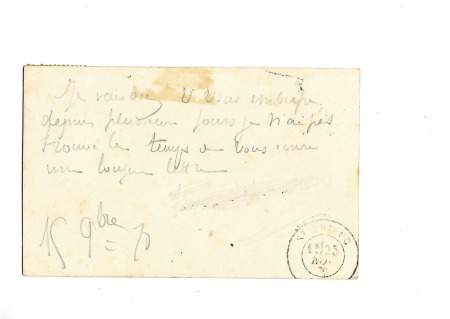 Je vais bien & vous embrasse,
depuis plusieurs jours je n'ai pas
trouvé le temps de vous écrire
une longue lettre
15 9bre 70